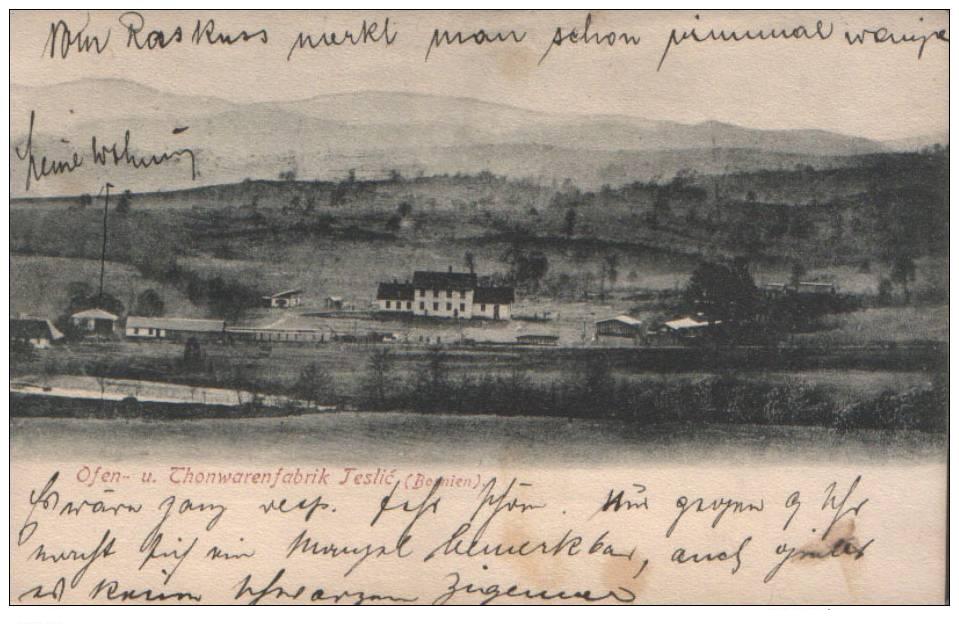 Von Raskuss merkt man schon viel weniger
Meine Wohnung
Ofen- u. Thonwarenfabrik Teslić (Bosnien).
Es wäre ganz resp. sehr schön. Nur gegen 9 Uhr
macht sich ein Mangel bemerkbar, auch
es keine schwarzen Zigeuner